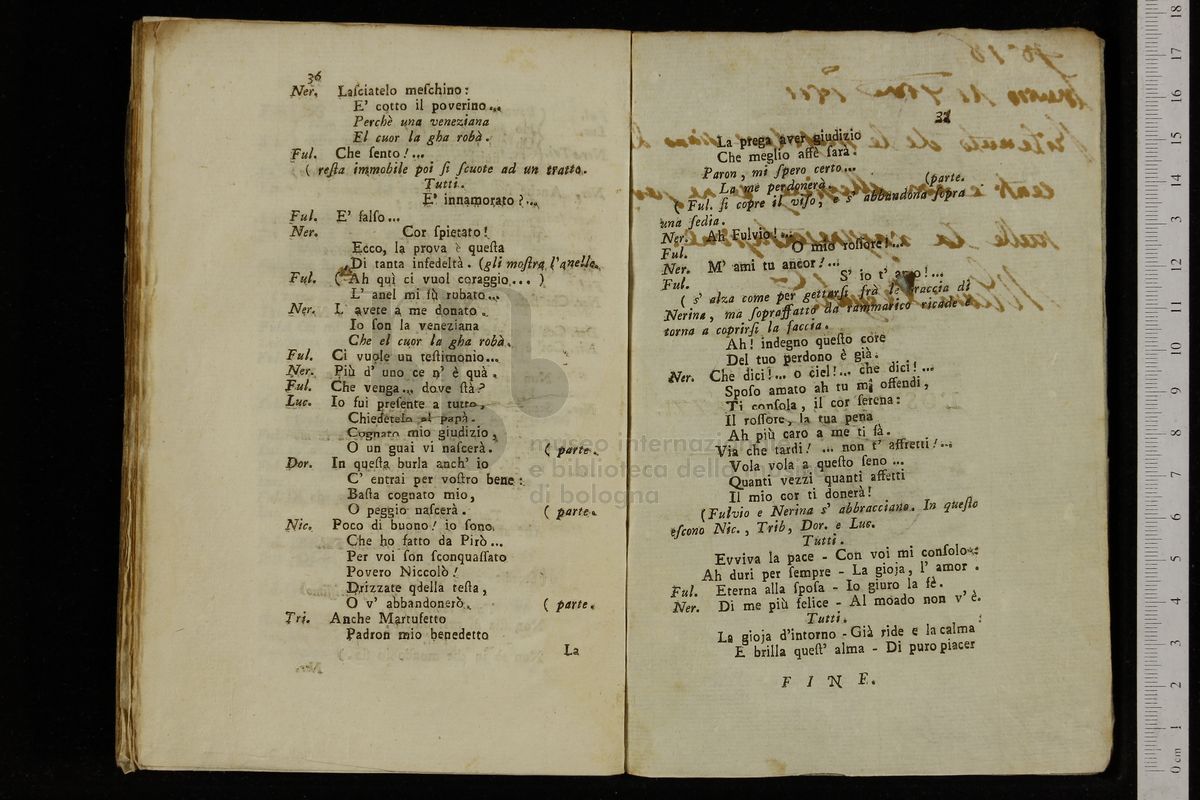 36
Ner. Laſciatelo meſchino:
E' cotto il poverino...
Perchè una veneziana
El cuor la gha robà.
Ful. Che ſento!...
( reſta immobile poi ſi ſcuote ad un tratto.
Tutti.
E' innamorato?...
Ful. E' falſo...
Ner. Cor ſpietato!
Ecco, la prova è queſta
Di tanta infedeltà. (gli moſtra l'anello.
Ful. (Ah quì ci vuol coraggio...)
L' anel mi fù rubato...
Ner. L' avete a me donato.
Io ſon la veneziana
Che el cuor la gha robà.
Ful. Ci vuole un teſtimonio...
Ner. Più d' uno ce n' è quà.
Ful. Che venga... dove ſtà?
Luc. Io fui preſente a tutto,
Chiedetelo al papà.
Cognato mio giudizio,
O un guai vi naſcerà. ( parte.
Dor. In queſta burla anch' io
C' entrai per voſtro bene:
Baſta cognato mio,
O peggio naſcerà. ( parte.
Nic. Poco di buono! io ſono,
Che ho fatto da Pirò...
Per voi ſon ſconquaſſato
Povero Niccolò!
Drizzate qdella teſta,
O v' abbandonerò. ( parte.
Tri. Anche Martufetto
Padron mio benedetto
La
La prega aver giudizio
Che meglio affè ſarà.
Paron, mi ſpero certo...
La me perdonerà. (parte.
( Ful. ſi copre il viſo, e s' abbandona ſopra
una ſedia.
Ner. Ah Fulvio!...
Ful. O mio roſſore!...
Ner. M' ami tu ancor!...
Ful. S' io t' amo!...
( s' alza come per gettarſi frà le braccia di
Nerina, ma ſopraffatto da rammarico ricade e
torna a coprirſi la faccia.
Ah! indegno queſto core
Del tuo perdono è già.
Ner. Che dici!... o ciel!... che dici!...
Spoſo amato ah tu mi offendi,
Ti conſola, il cor ſerena:
Il roſſore, la tua pena
Ah più caro a me ti fà.
Via che tardi! ... non t' affretti!...
Vola vola a queſto ſeno...
Quanti vezzi quanti affetti
Il mio cor ti donerà!
(Fulvio e Nerina s' abbracciano. In queſto
eſcono Nic., Trib, Dor. e Luc.
Tutti.
Evviva la pace - Con voi mi conſolo:
Ah duri per ſempre - La gioja, l' amor.
Ful. Eterna alla ſpoſa - Io giuro la fè.
Ner. Di me più felice - Al moado non v' è.
Tutti.
La gioja d'intorno - Già ride e la calma
E brilla queſt' alma - Di puro piacer
F I N E.
museo internazionale
e biblioteca della musica
di bologna